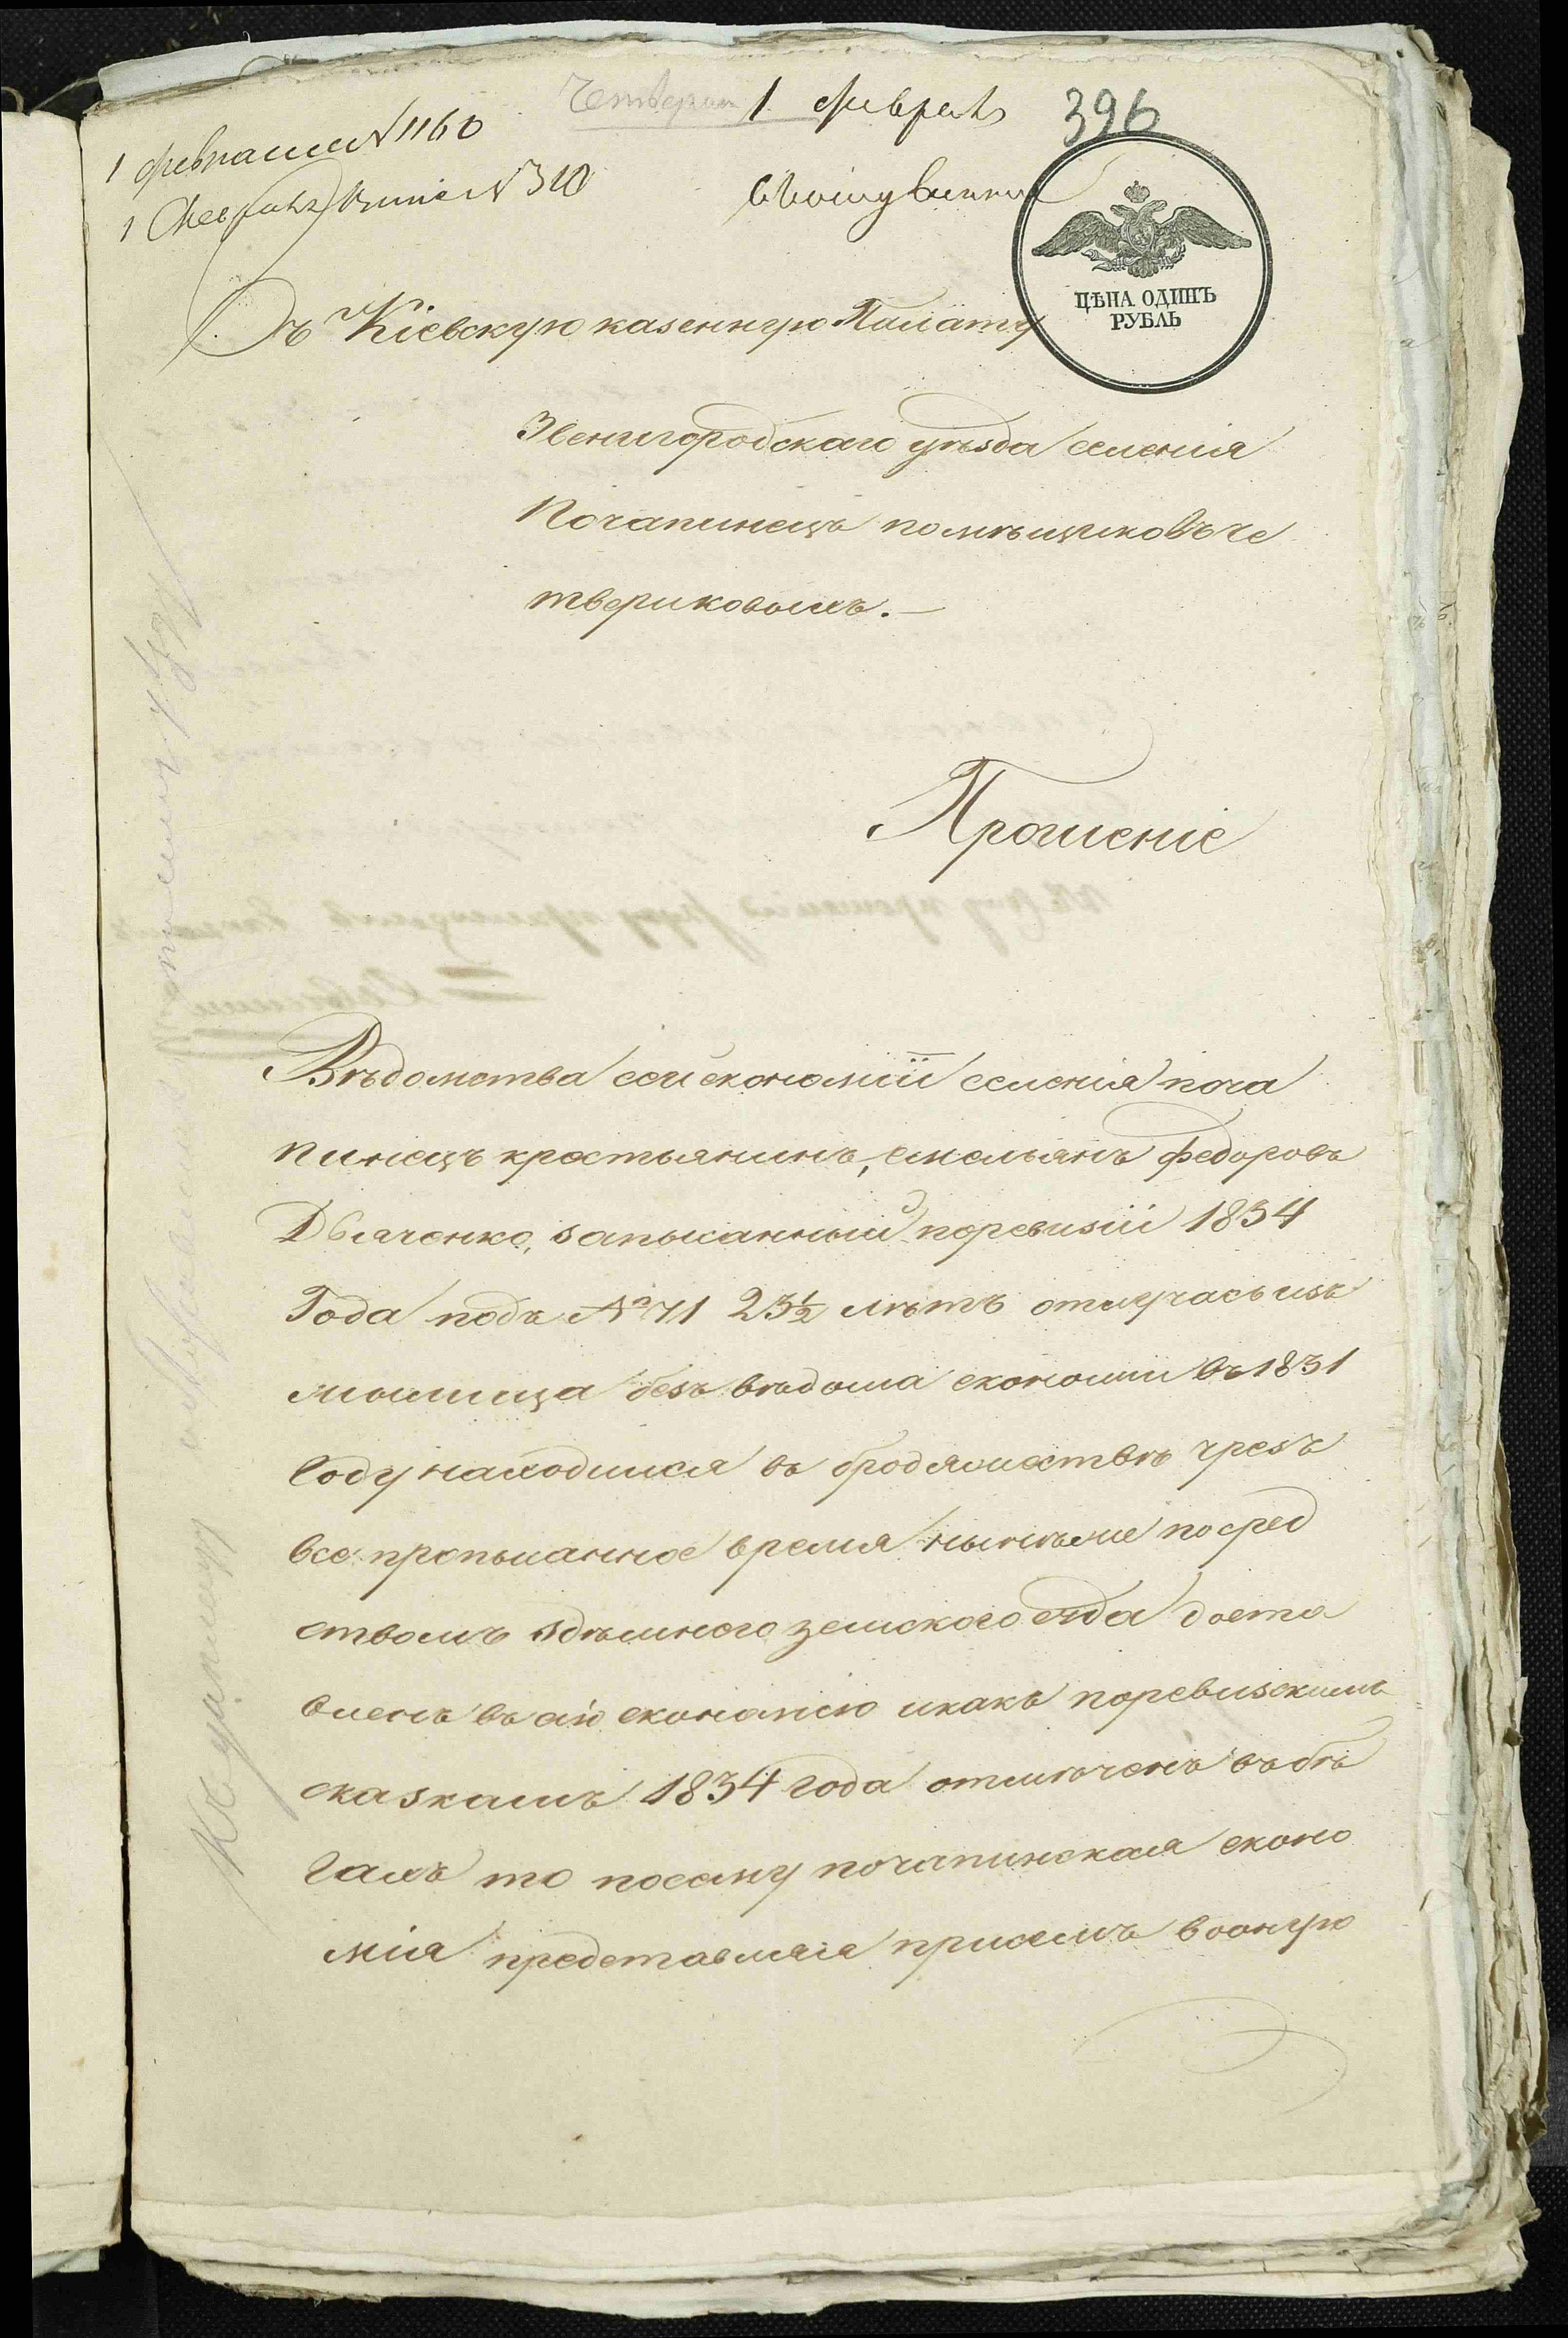 1 февраля
396
1 февраля N 1160
1 Февраля N 310
ЦѢНА ОДИНЪ
РУБЛЬ
Въ Кіевскую казенную Палату
Звенигородскаго уѣзда селенія
Почапинецъ помѣщиковъ че
твериковыхъ.—
Прошеніе
Вѣдомства сей економіи селенія поча
пинецъ крестьянинъ, емельянъ федоровъ
Дьяченко, запысанный поревизіи 1834
Года подъ № 71 23½ лѣтъ отлучась изъ
жылища безъ вѣдома економіи въ 1831
Году находился въ бродяжествѣ чрезъ
все прописанное время нынѣже посред
ствомъ здѣшного земского суда доста
вленъ въ сію економію икакъ поревизскимъ
сказкамъ 1834 года отмѣченъ въ бѣ
гахъ то посему почапинская еконо
мія представляя присемъ вооную